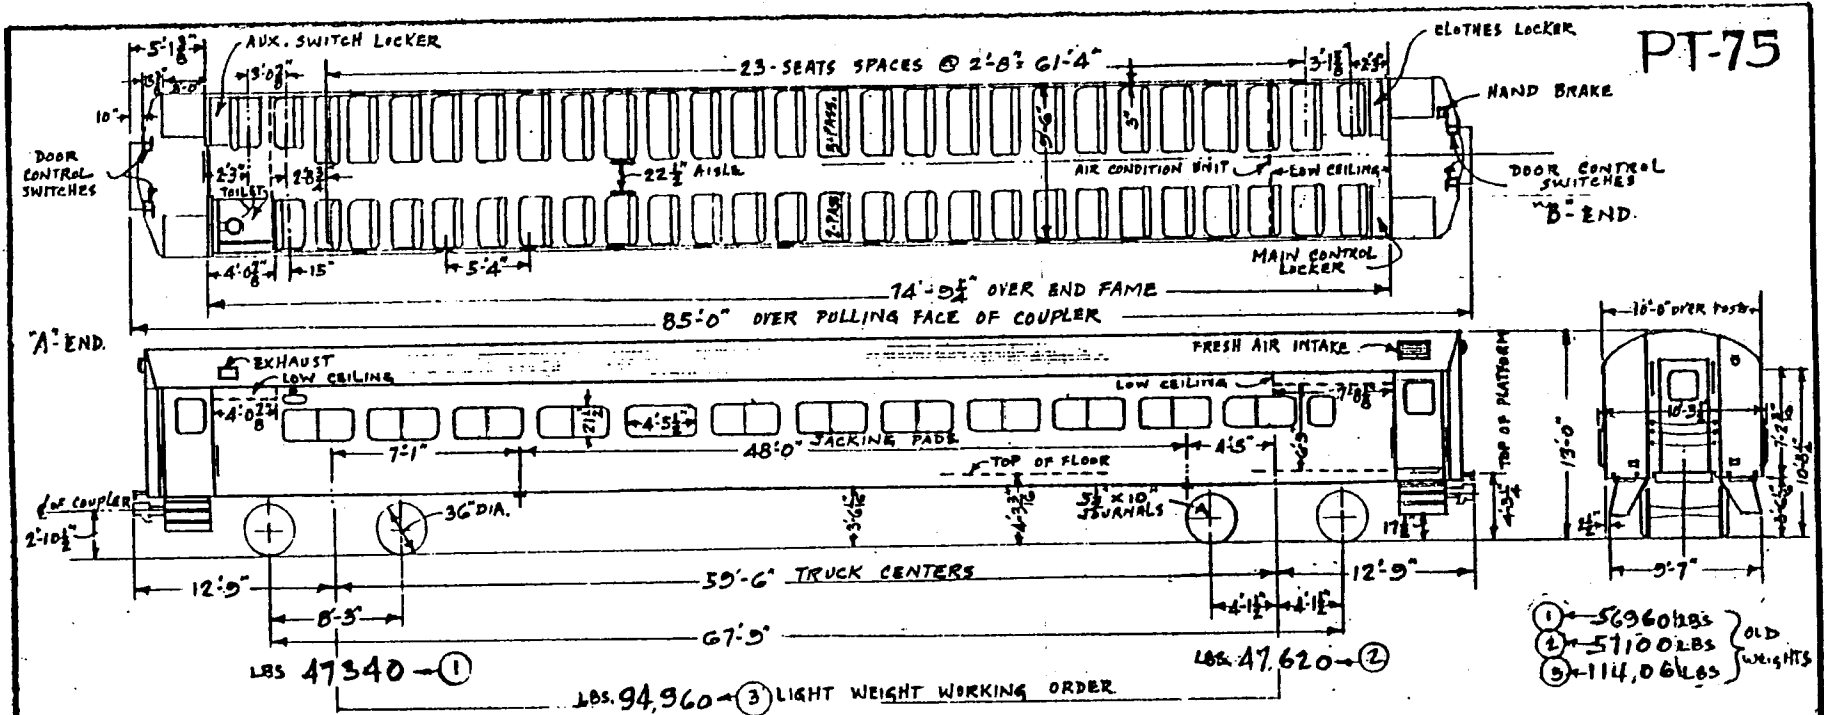 PT-75
5'-1 3/8"
AUX. SWITCH LOCKER
3'-0 7/8"
23-SEATS SPACES @ 2'-8" = 61'-4"
CLOTHES LOCKER
HAND BRAKE
10"
DOOR
CONTROL
SWITCHES
2'-3"
TOILET
2'-8 3/4"
22 1/2" AISLE
3-PASS.
2-PASS.
9'-6"
3"
AIR CONDITION UNIT
LOW CEILING
DOOR CONTROL
SWITCHES
"B"-END.
MAIN CONTROL
LOCKER
4'-0 7/8"
15"
5'-4"
74'-9 1/4" OVER END FAME
85'-0" OVER PULLING FACE OF COUPLER
"A"-END.
EXHAUST
LOW CEILING
FRESH AIR INTAKE
LOW CEILING
10'-0" OVER POSTS
4'-0 7/8"
21 1/2"
4'-5 1/2"
7'-1"
48'-0" JACKING PADS
4'-5"
6'-9"
TOP OF FLOOR
TOP OF PLATFORM
4'-3 1/4"
13'-0"
10'-8 1/2"
℄ OF COUPLER
2'-10 1/2"
36" DIA.
5 1/2" X 10"
JOURNALS
A
2 1/2"
12'-9"
59'-6" TRUCK CENTERS
12'-9"
9'-7"
8'-3"
4'-1 1/2"
4'-1 1/2"
67'-9"
LBS 47340 ① 
LBS. 47,620 ②
LBS. 94,960 ③ LIGHT WEIGHT WORKING ORDER
① 56960 LBS
② 57100 LBS
③ 114,06 LBS
OLD
WEIGHTS